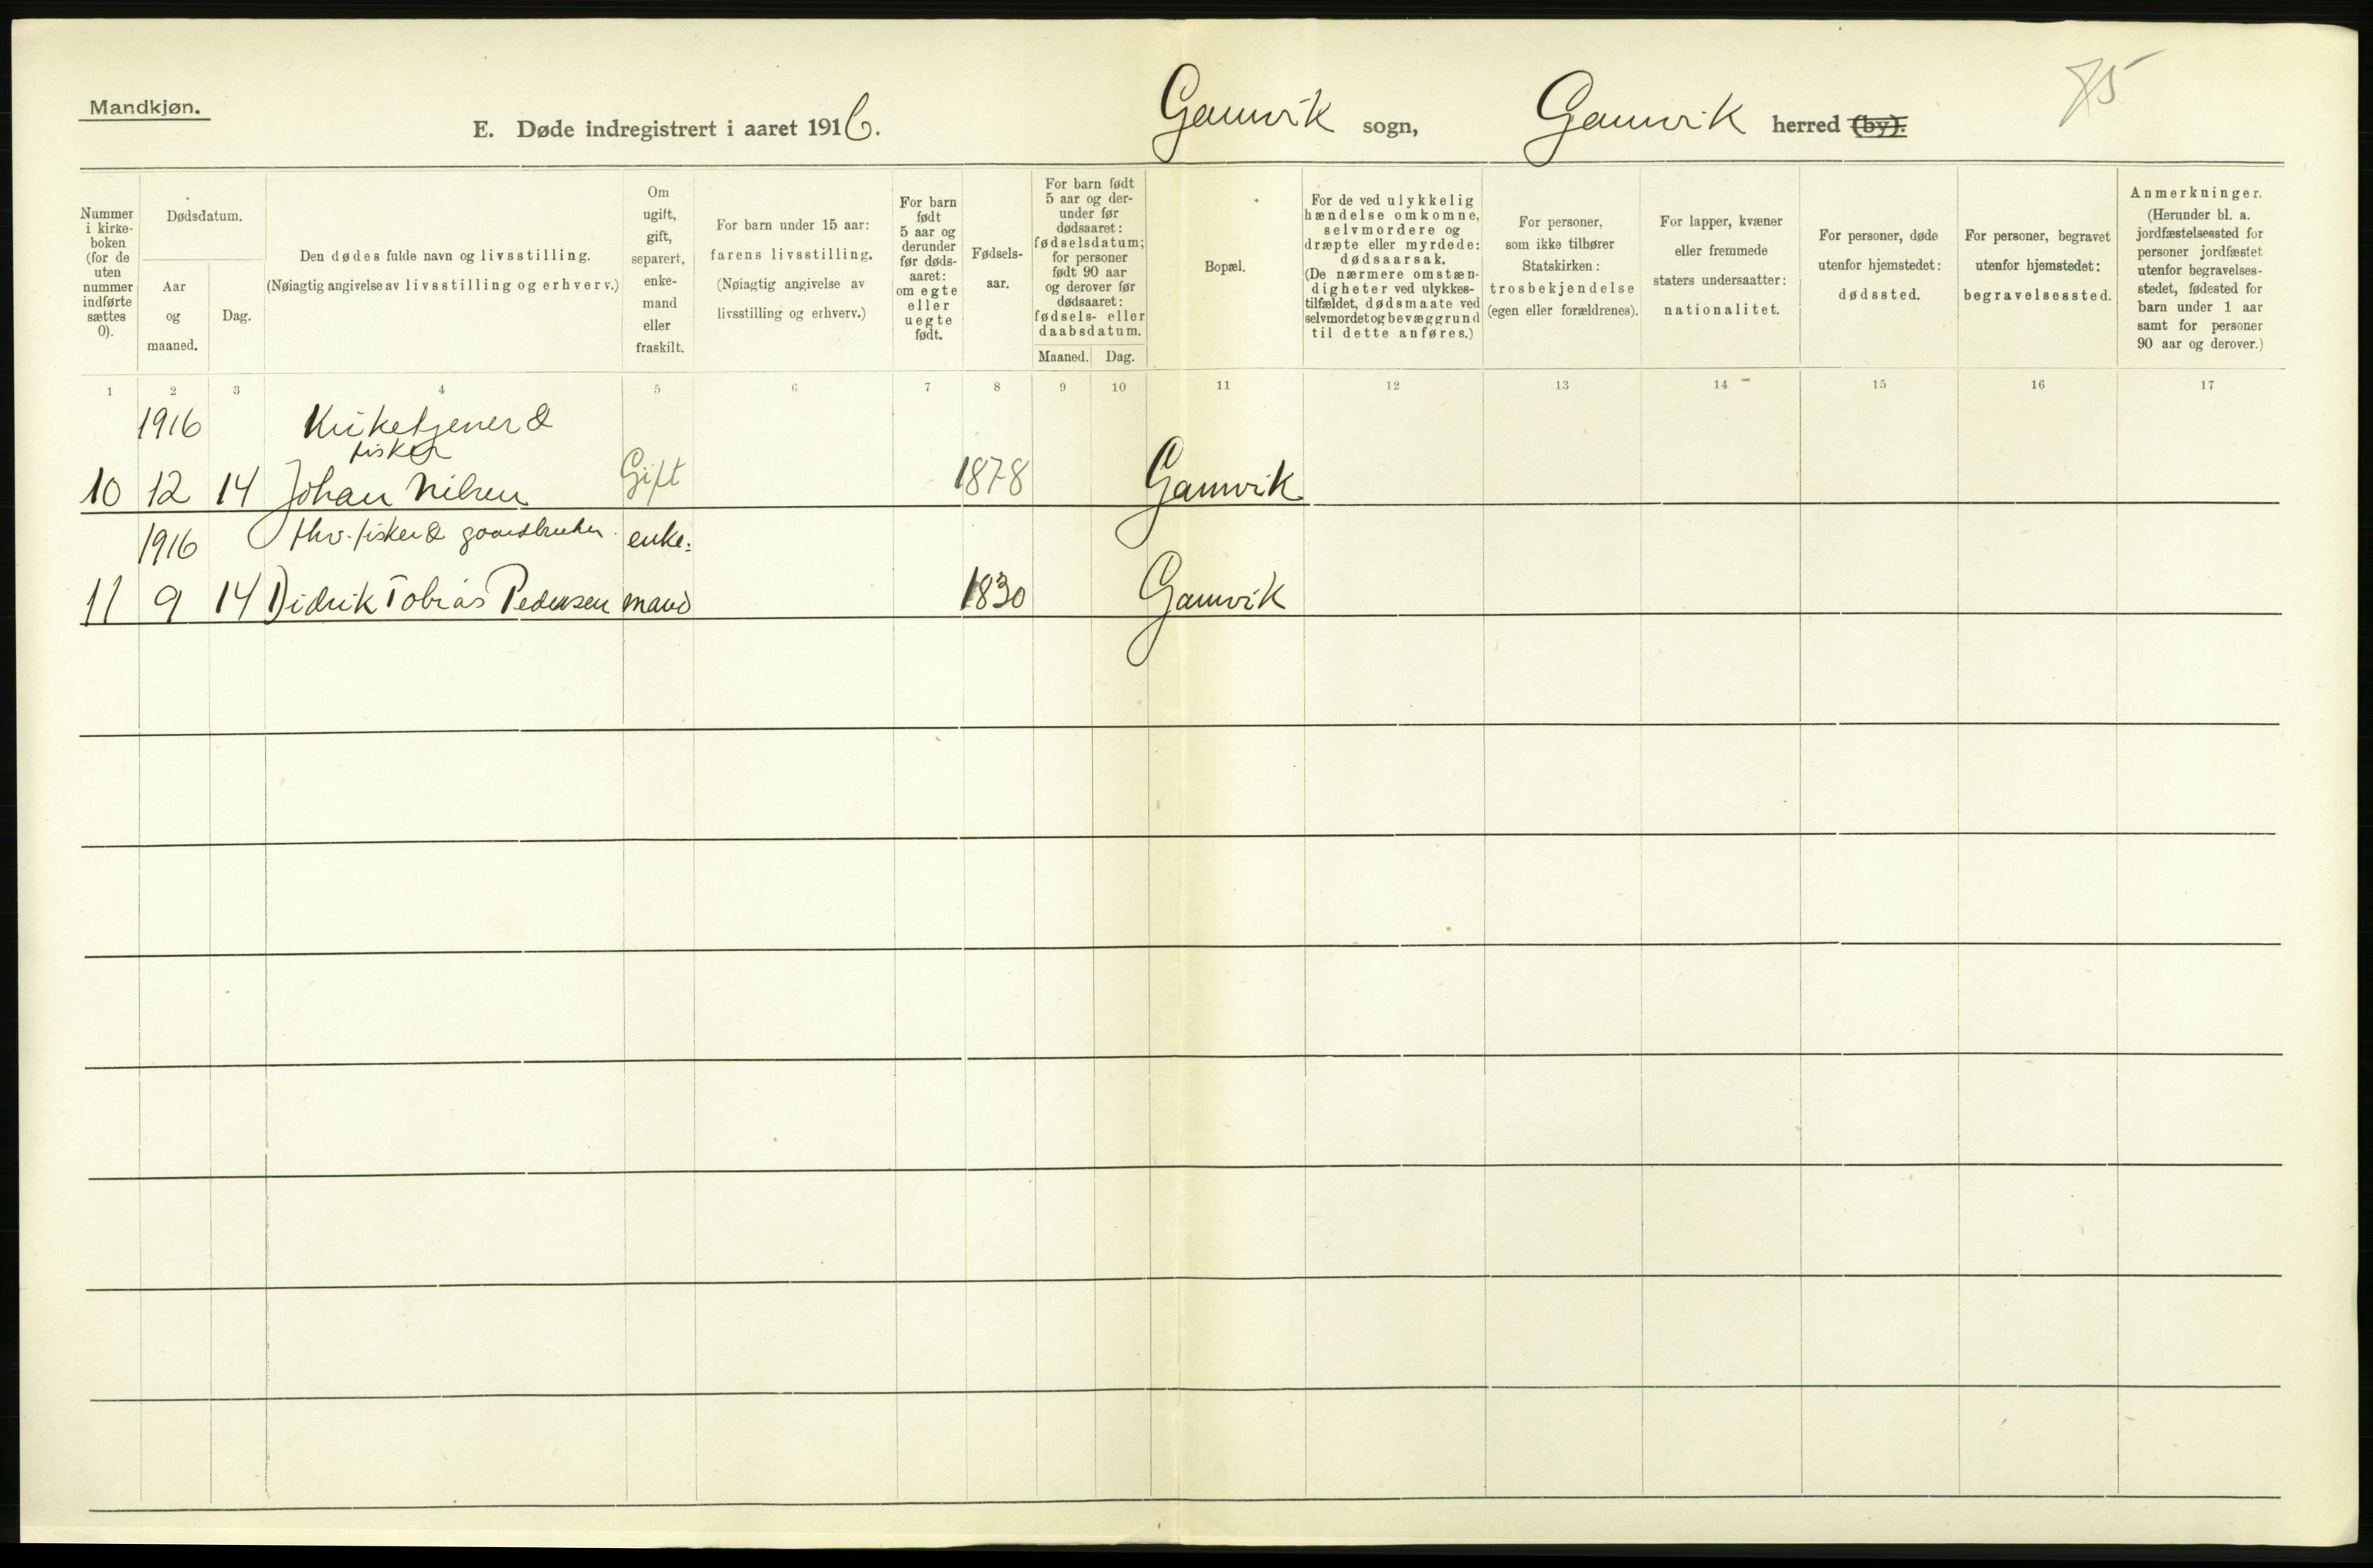 75
Mandkjøn.
E. Døde indregistrert i aaret 1916.
Gamvik sogn, Gamvik herred (by).
Nummer i kirke-
boken
(for de
uten
nummer
indførte
sættes
0).
Dødsdatum.
Aar
og
maaned.
Dag.
Den dødes fulde navn og livsstilling.
(Nøiagtig angivelse av livsstilling og erhverv.)
Om
ugift,
gift,
separert,
enke-
mand
eller
fraskilt.
For barn under 15 aar:
farens livsstilling.
(Nøiagtig angivelse av
livsstilling og erhverv.)
For barn
født
5 aar og
derunder
før døds-
aaret:
om egte
eller
uegte
født.
Fødsels-
aar.
For barn født
5 aar og der-
under før
dødsaaret:
fødselsdatum;
for personer
født 90 aar
og derover før
dødsaaret:
fødsels- eller
daabsdatum.
Maaned. Dag.
Bopæl.
For de ved ulykkelig
hændelse omkomne,
selvmordere og
dræpte eller myrdede:
dødsaarsak.
(De nærmere omstæn-
digheter ved ulykkes-
tilfældet, dødsmaate ved
selvmordet og bevæggrund
til dette anføres.)
For personer,
som ikke tilhører
Statskirken:
trosbekjendelse
(egen eller forældrenes).
For lapper, kvæner
eller fremmede
staters undersaatter:
nationalitet.
For personer, døde
utenfor hjemstedet:
dødssted.
For personer, begravet
utenfor hjemstedet:
begravelsessted.
Anmerkninger.
(Herunder bl. a.
jordfæstelsessted for
personer jordfæstet
utenfor begravelses-
stedet, fødested for
barn under 1 aar
samt for personer
90 aar og derover.)
1 2 3 4 5 6 7 8 9 10 11 12 13 14 15 16 17
1916 Kirketjener &
fisker
10 12 14 Johan Nilsen Gift 1878 Gamvik
1916 fhv. fisker & gaardbruker enke-
11 9 14 Didrik Tobias Pedersen mand 1830 Gamvik